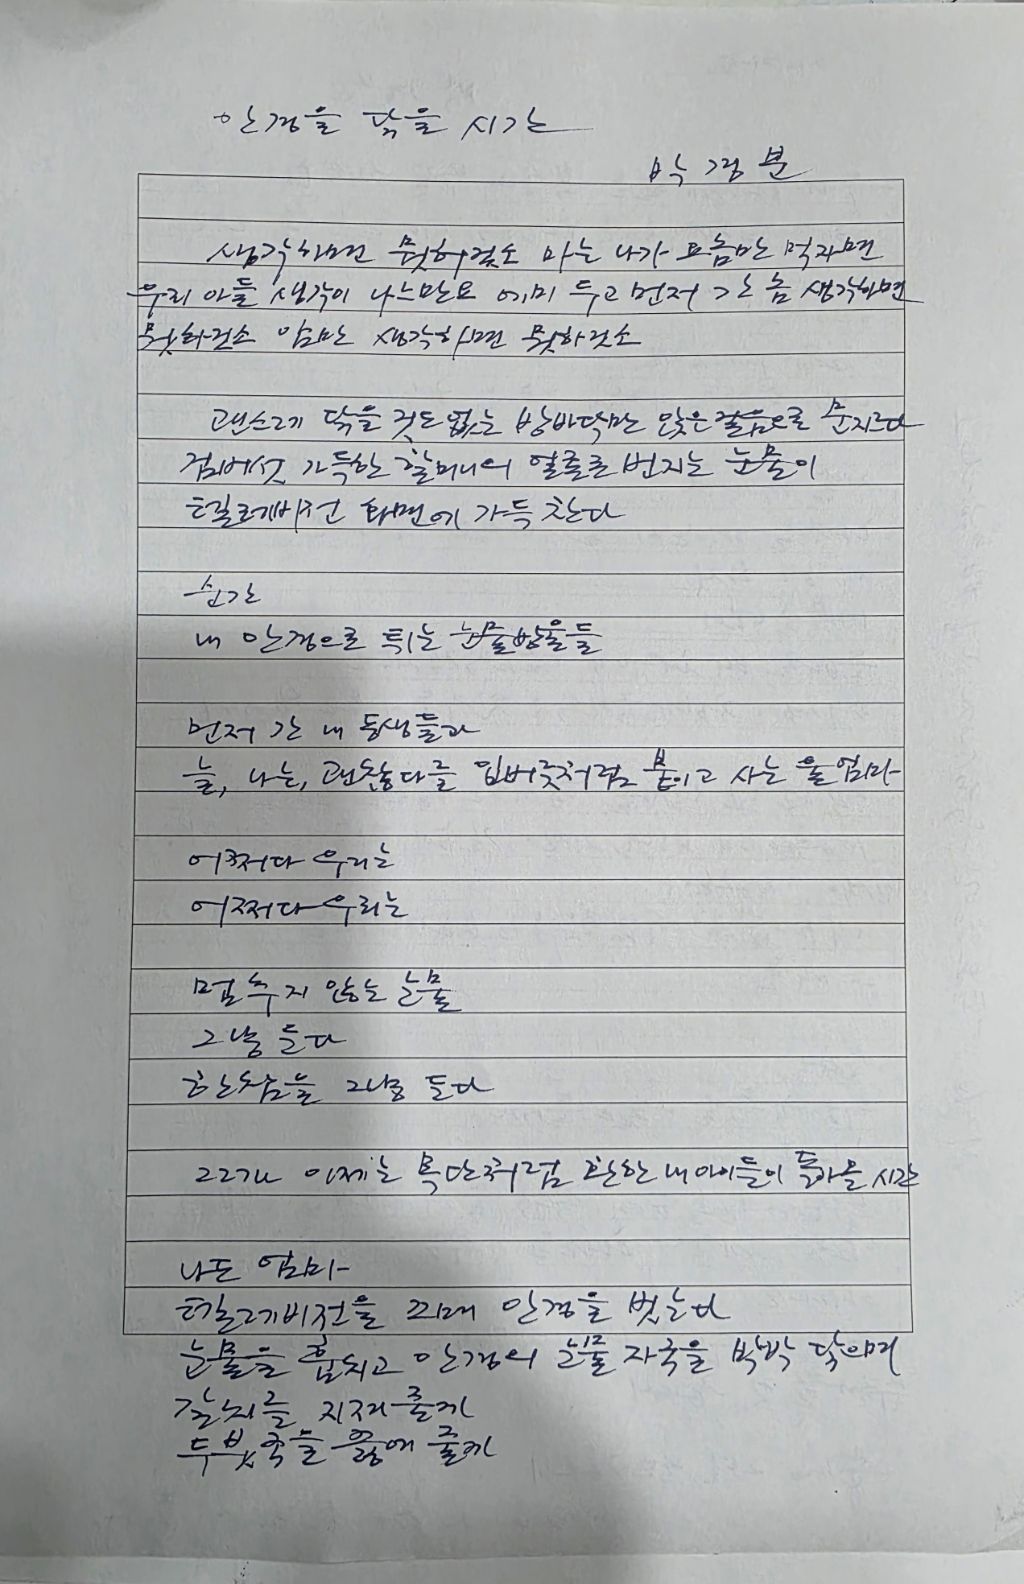 안경을 닦을 시간
박경분
생각하면 뭣허겄소 마는 나가 요놈만 먹자면
우리 아들 생각이 나느만요 에미 두고 먼저 간 놈 생각하면
뭣하것소 암만 생각하면 뭣하것소
괜스레 닦을 것도 없는 방바닥만 맞은 걸음으로 문지르다
검버섯 가득한 할머니의 얼굴로 번지는 눈물이
테레비전 화면에 가득 찬다
순간
내 안경으로 튀는 눈물방울들
먼저 간 내 동생들과
늘, 나는, 괜찮다를 입버릇처럼 붙이고 사는 울엄마
어쩌다 우리는
어쩌다 우리는
멈추지 않는 눈물
그냥 둔다
한참을 그냥 둔다
그러나 이제는 목단처럼 환한 내 아이들이 돌아올 시간
나는 엄마
테레비전을 끄며 안경을 벗는다
눈물을 훔치고 안경의 눈물 자국을 박박 닦으며
갈치를 지져줄까
두붓국을 끓여 줄까